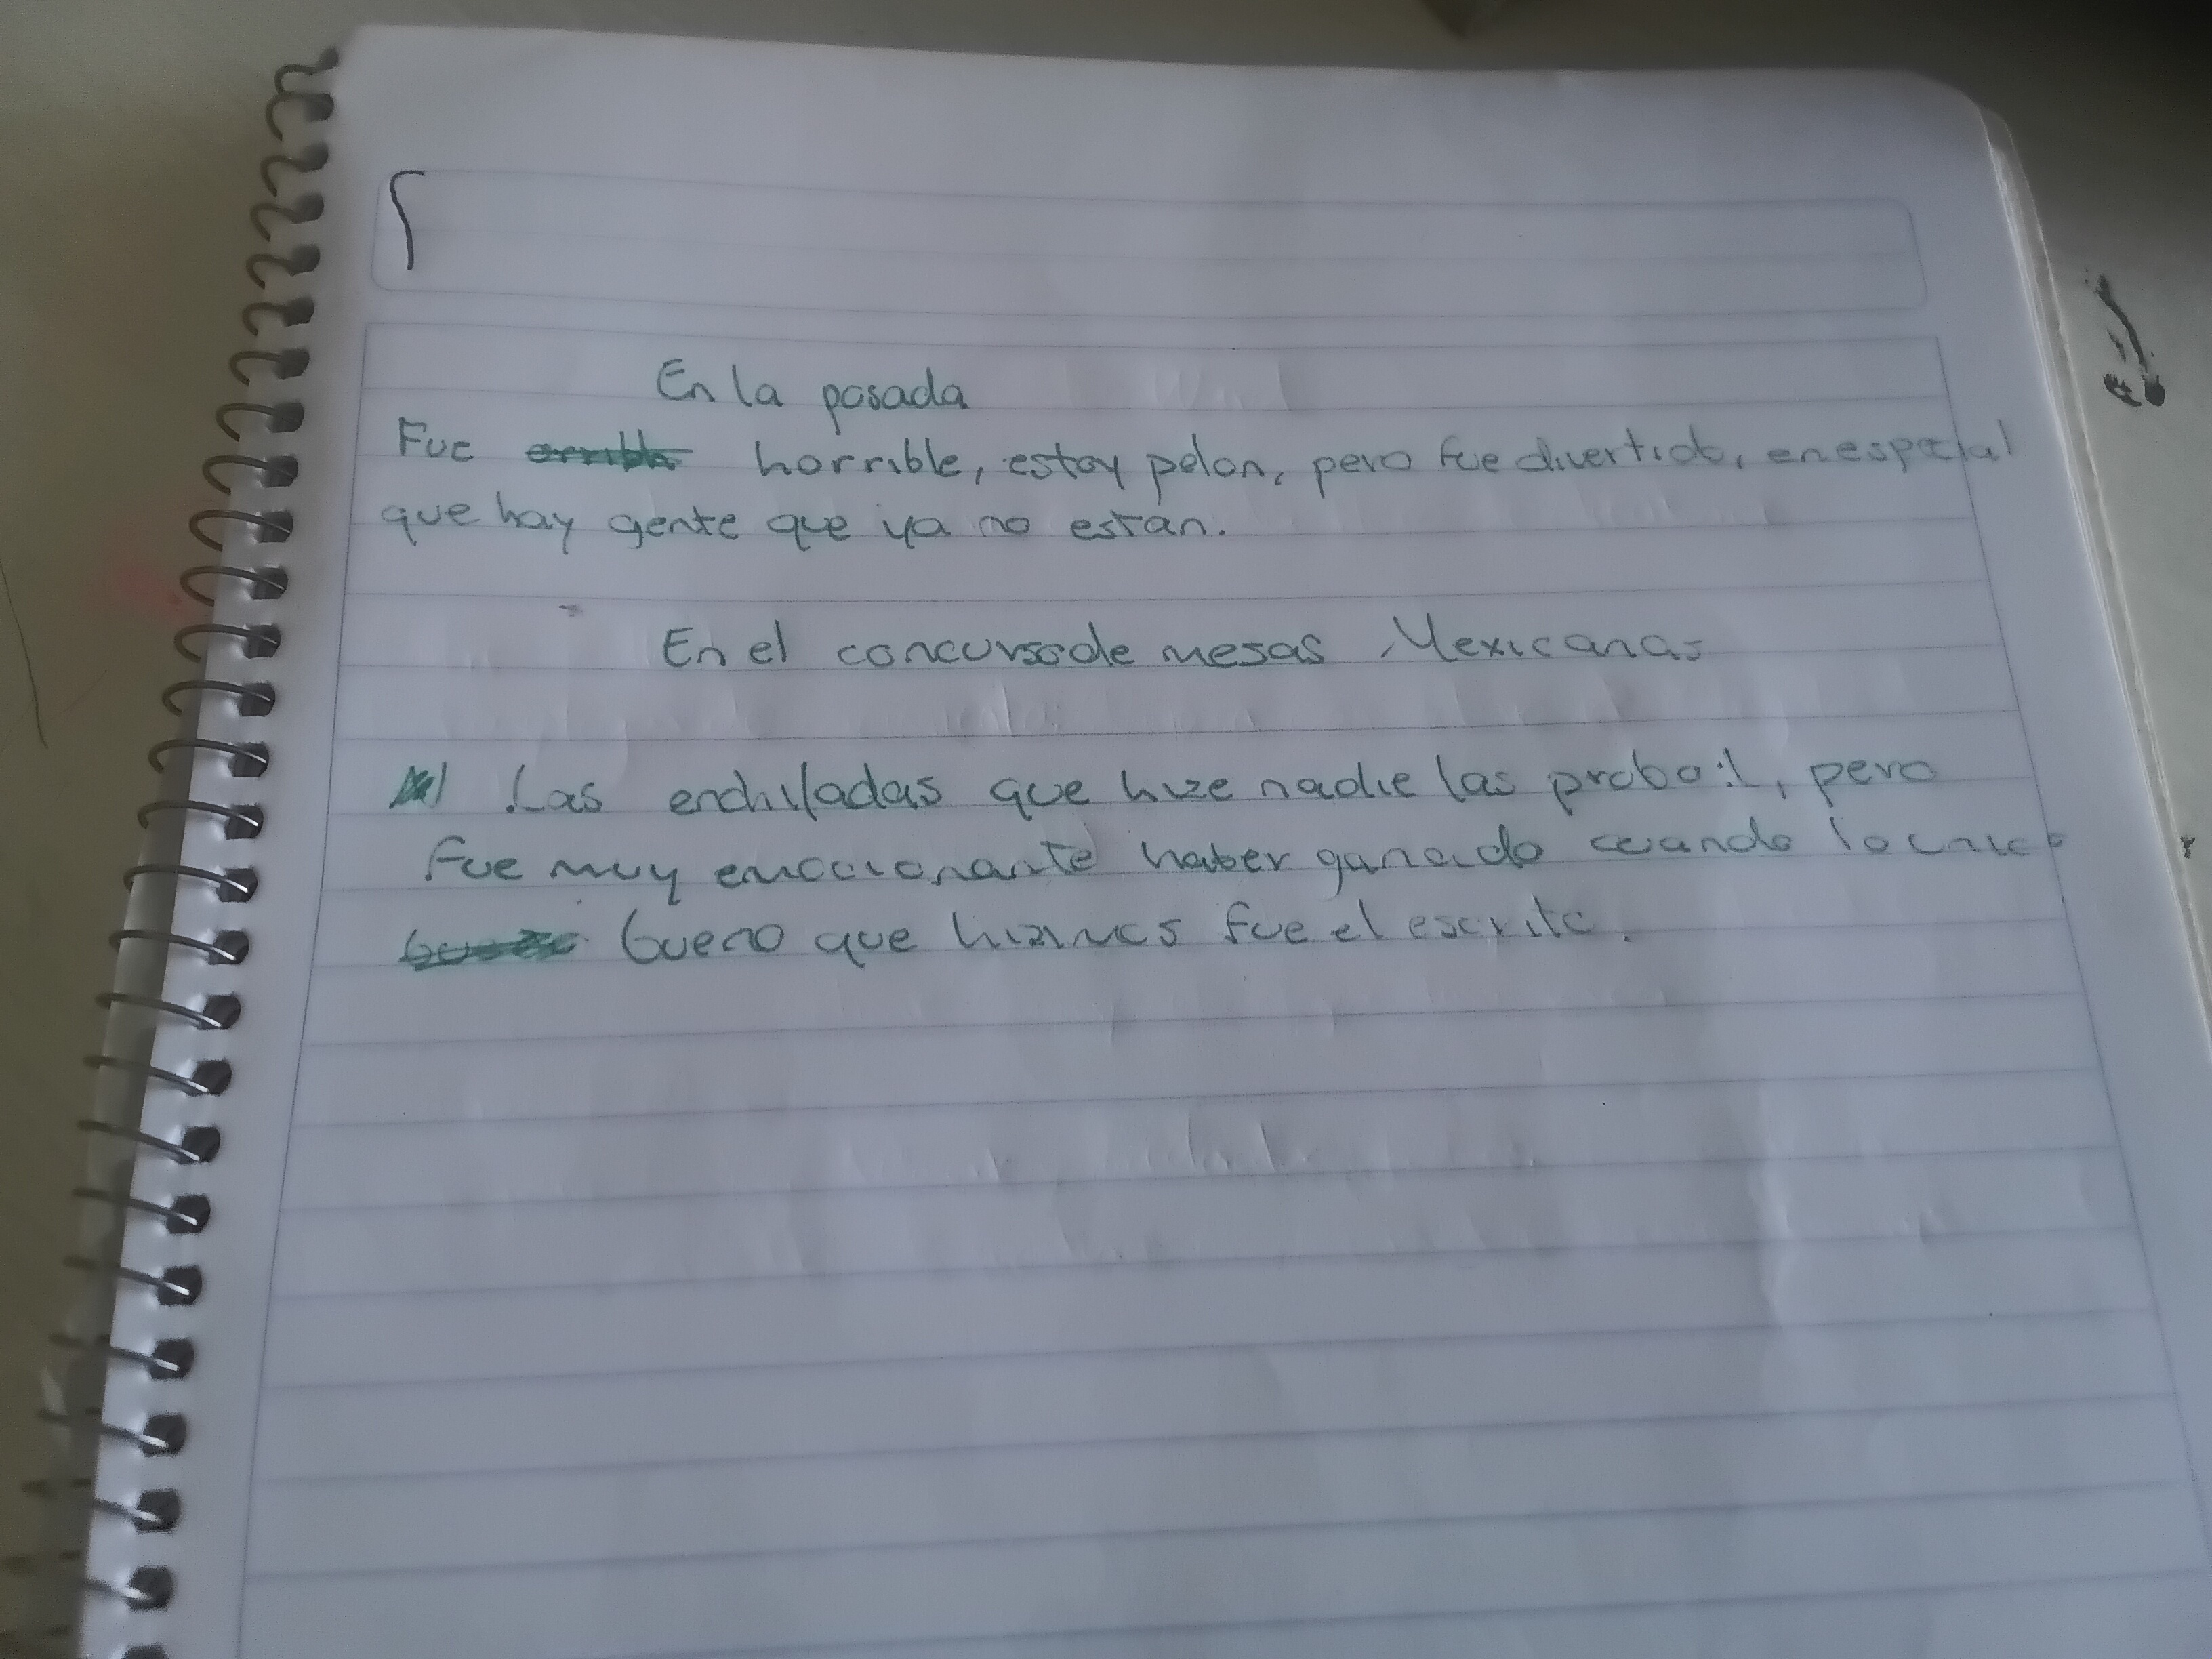 En la posada
Fue horrible, estoy pelon, pero fue divertido, en especial
que hay gente que ya no estan.
En el concurso de mesas Mexicanas
Las enchiladas que hize nadie las probo, pero
fue muy emocionante haber ganado cuando lo unico
bueno que hizimos fue el escrito.